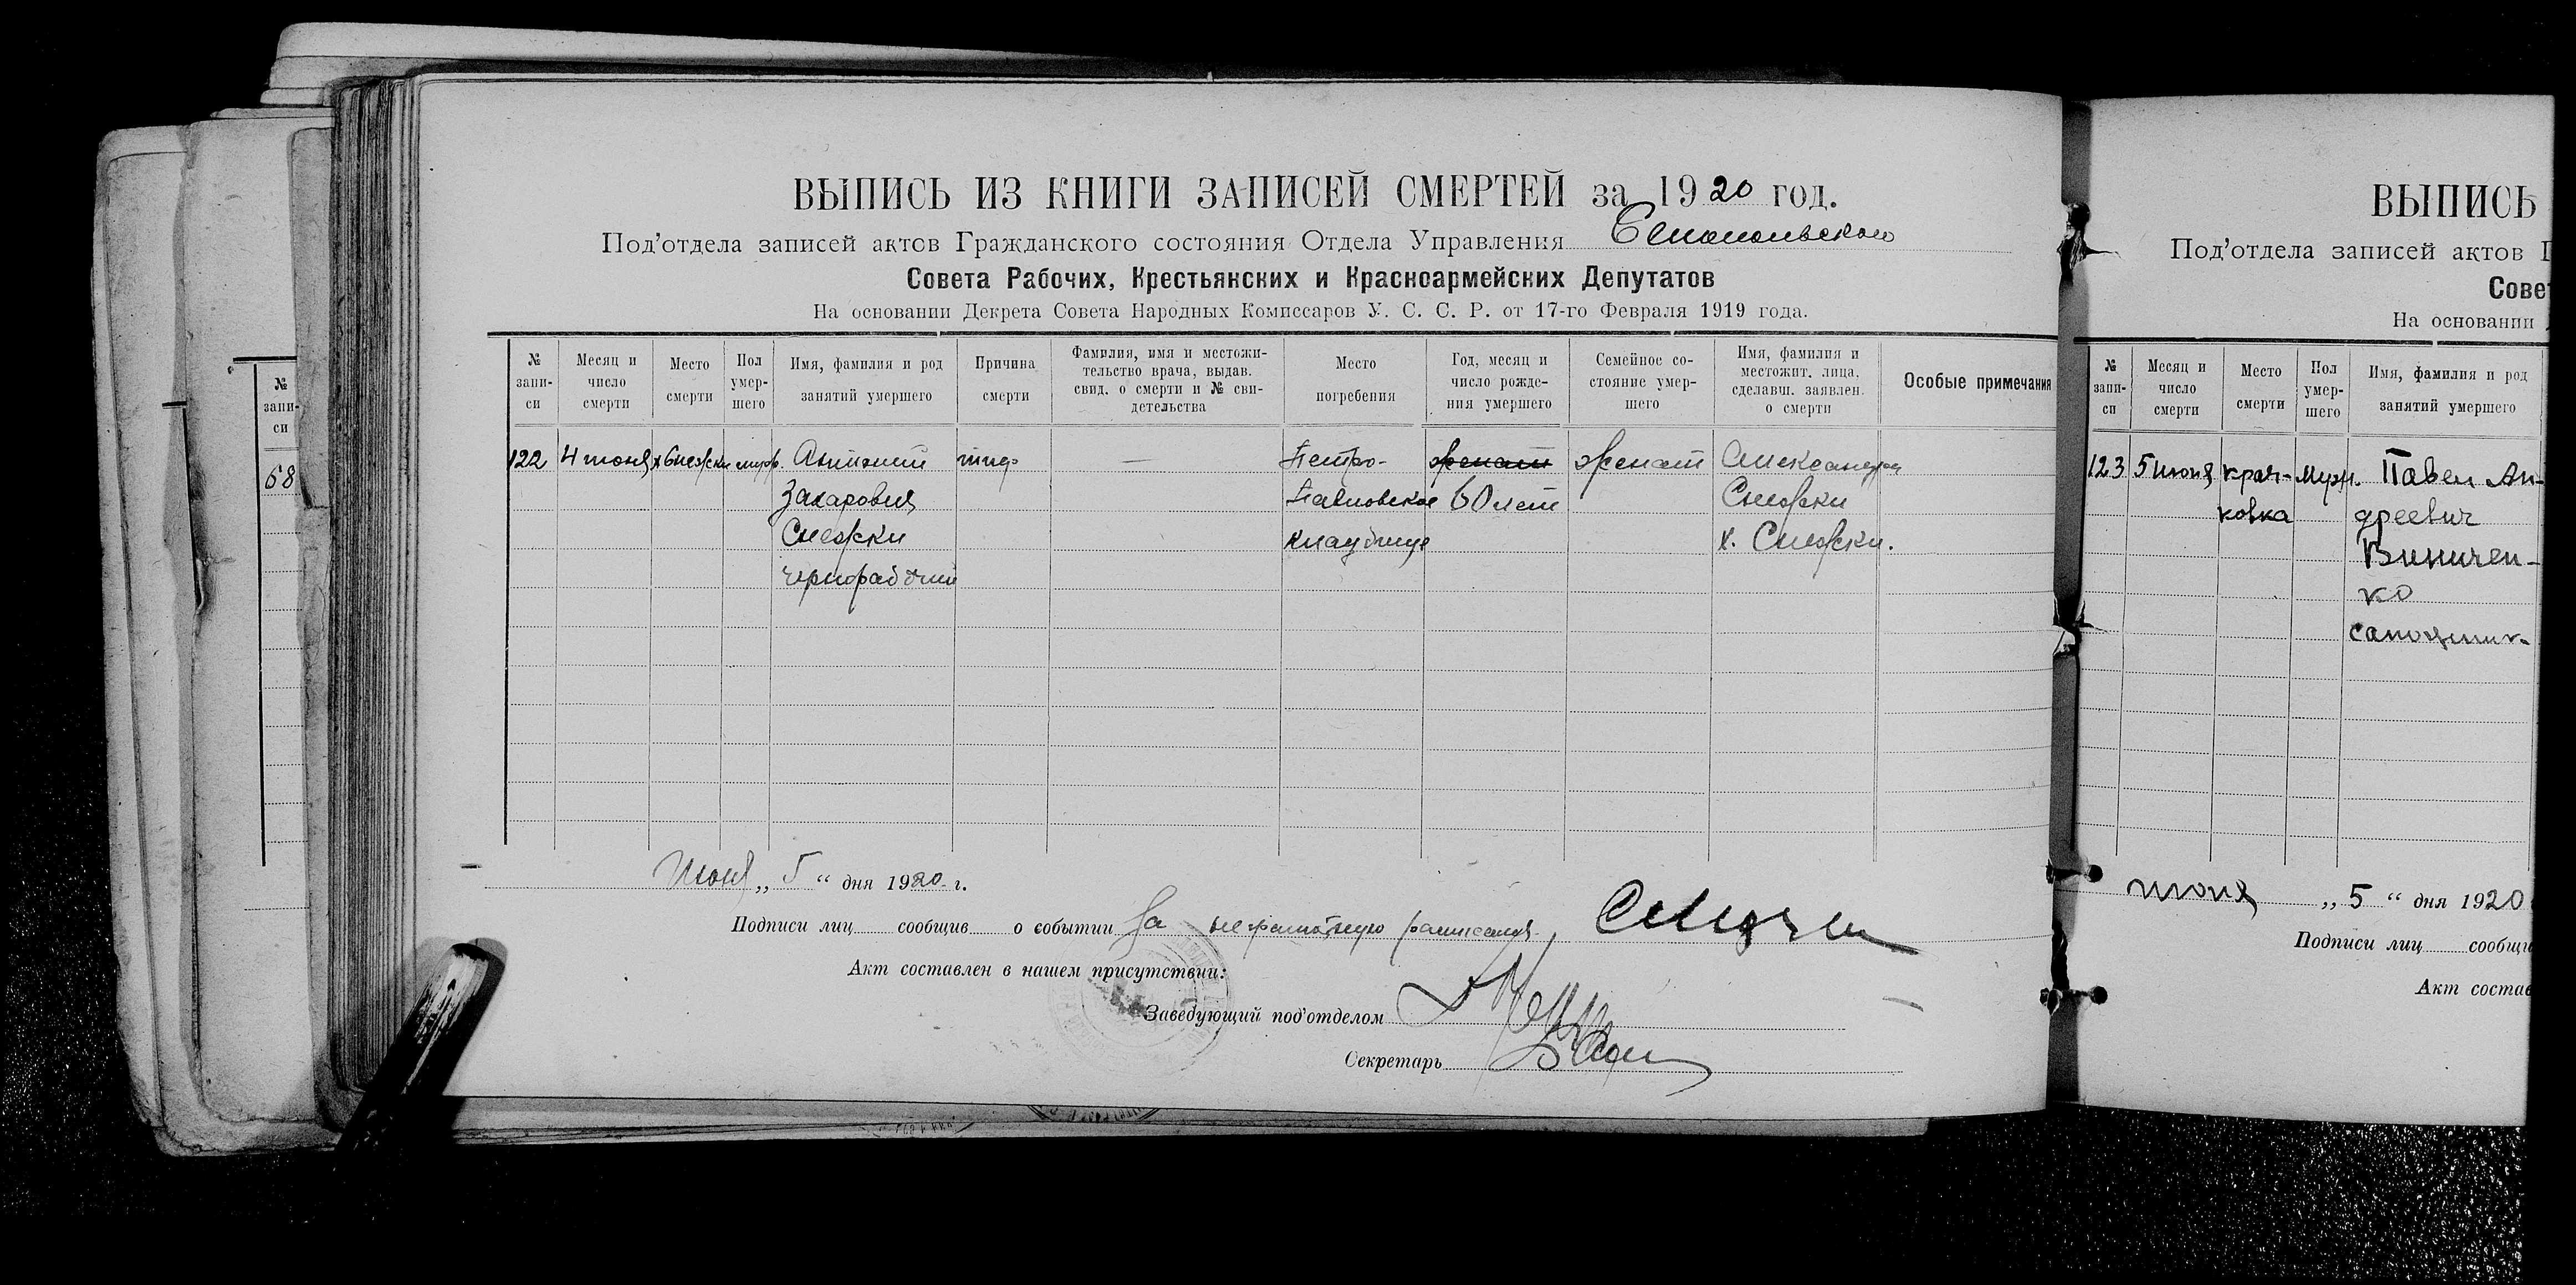 ВЫПИСЬ ИЗ КНИГИ ЗАПИСЕЙ СМЕРТЕЙ за 1920 год.
Под'отдела записей актов Гражданского состояния Отдела Управления
Совета Рабочих, Крестьянских и Красноармейских Депутатов
На основании Декрета Совета Народных Комиссаров У. С. С. Р. от 17-го Февраля 1919 года.
№ запи-си
Месяц и число смерти
Место смерти
Пол умер-шего
Имя, фамилия и род занятий умершего
Причина смерти
Фамилия, имя и местожи-тельство врача, выдав. свид. о смерти и № сви-детельства
Место погребения
Год, месяц и число рожде-ния умершего
Семейное со-стояние умер-шего
Имя, фамилия и местожит. лица, сделавш. заявлен. о смерти
Особые примечания
122 4 июня муж. Антоний тиф — Петро- женат женат Александра
Захарович Павловское 60 лет Снежки
Снежки кладбище х. Снежки.
чернорабочий
Июня „ 5 “ дня 1920 г.
Подписи лиц сообщив о событии За неграмотную расписался
Акт составлен в нашем присутствии:
Заведующий под'отделом
Секретарь
№ запи-си
68
ВЫПИСЬ
Под'отдела записей актов Г
Совет
На основании
№ запи-си
Месяц и число смерти
Место смерти
Пол умер-шего
Имя, фамилия и род занятий умершего
123 5 июня Крач- Муж. Павел Ан-
ковка дреевич
Виничен-
ко
сапожник
июня „ 5 “ дня 1920
Подписи лиц сообщи
Акт состав